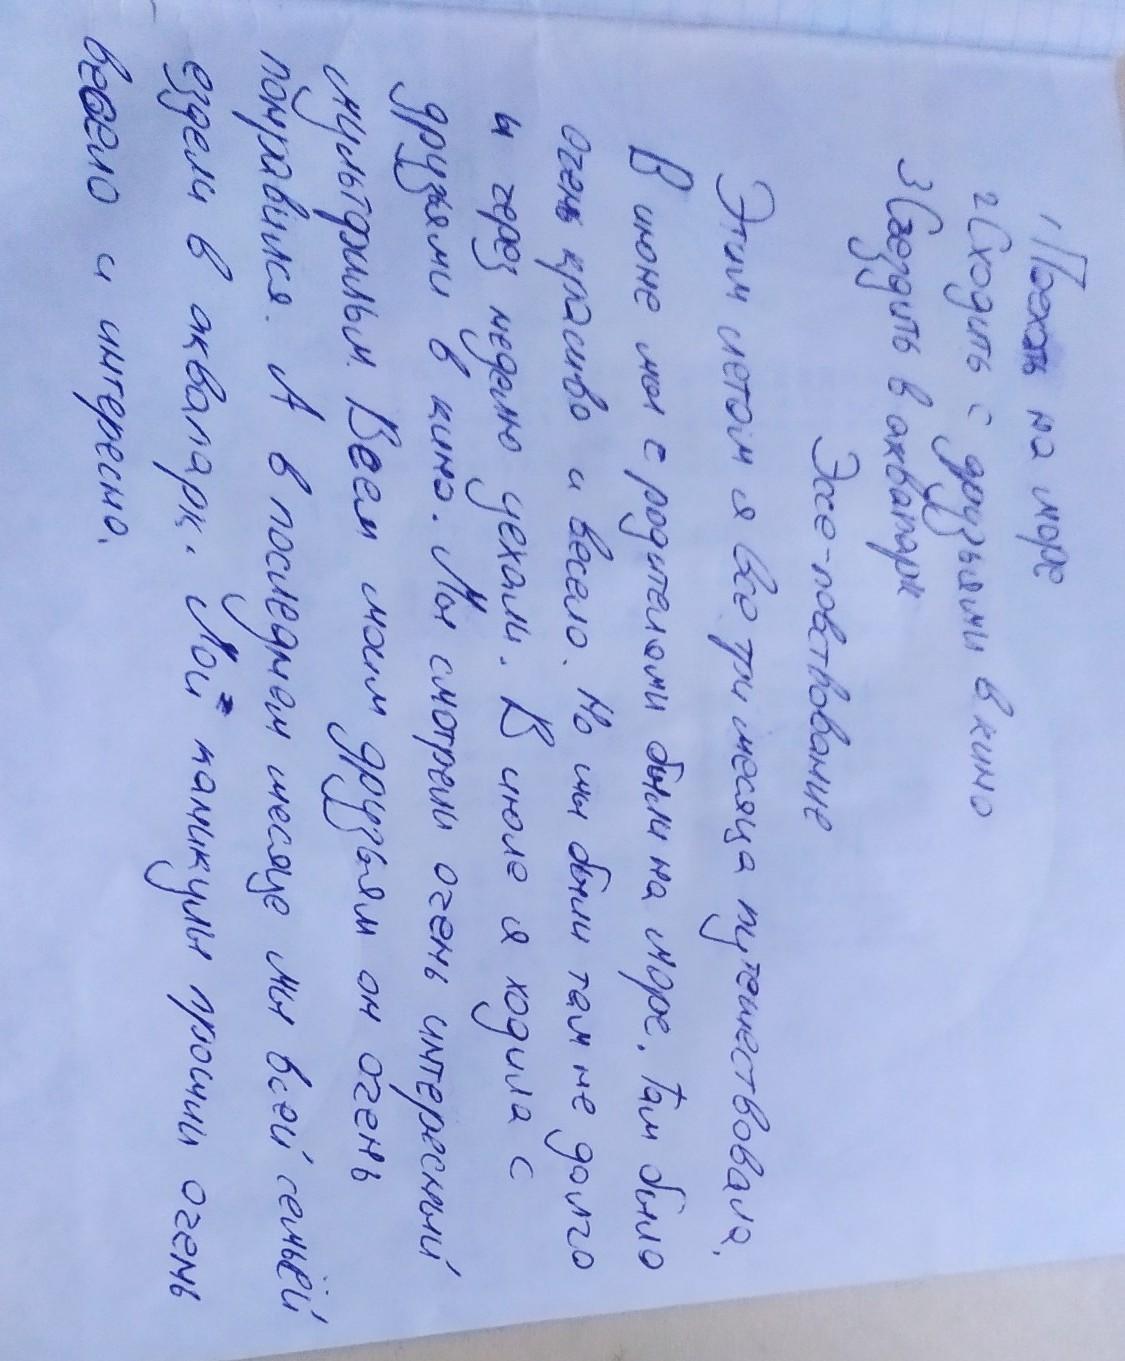 1) Поехать на море
2) Сходить с друзьями в кино
3) Съездить в аквапарк
Эссе-повствование
Этим летом я все три месяца путешествовала.
В июне мы с родителями были на море. Там было
очень красиво и весело. Но мы были там не долго
и через неделю уехали. В июле я ходила с
друзьями в кино. Мы смотрели очень интересный
мультфильм. Всем моим друзьям он очень
понравился. А в последнем месяце мы всей семьёй
ездели в аквапарк. Мои каникулы прошли очень
весело и интересно.